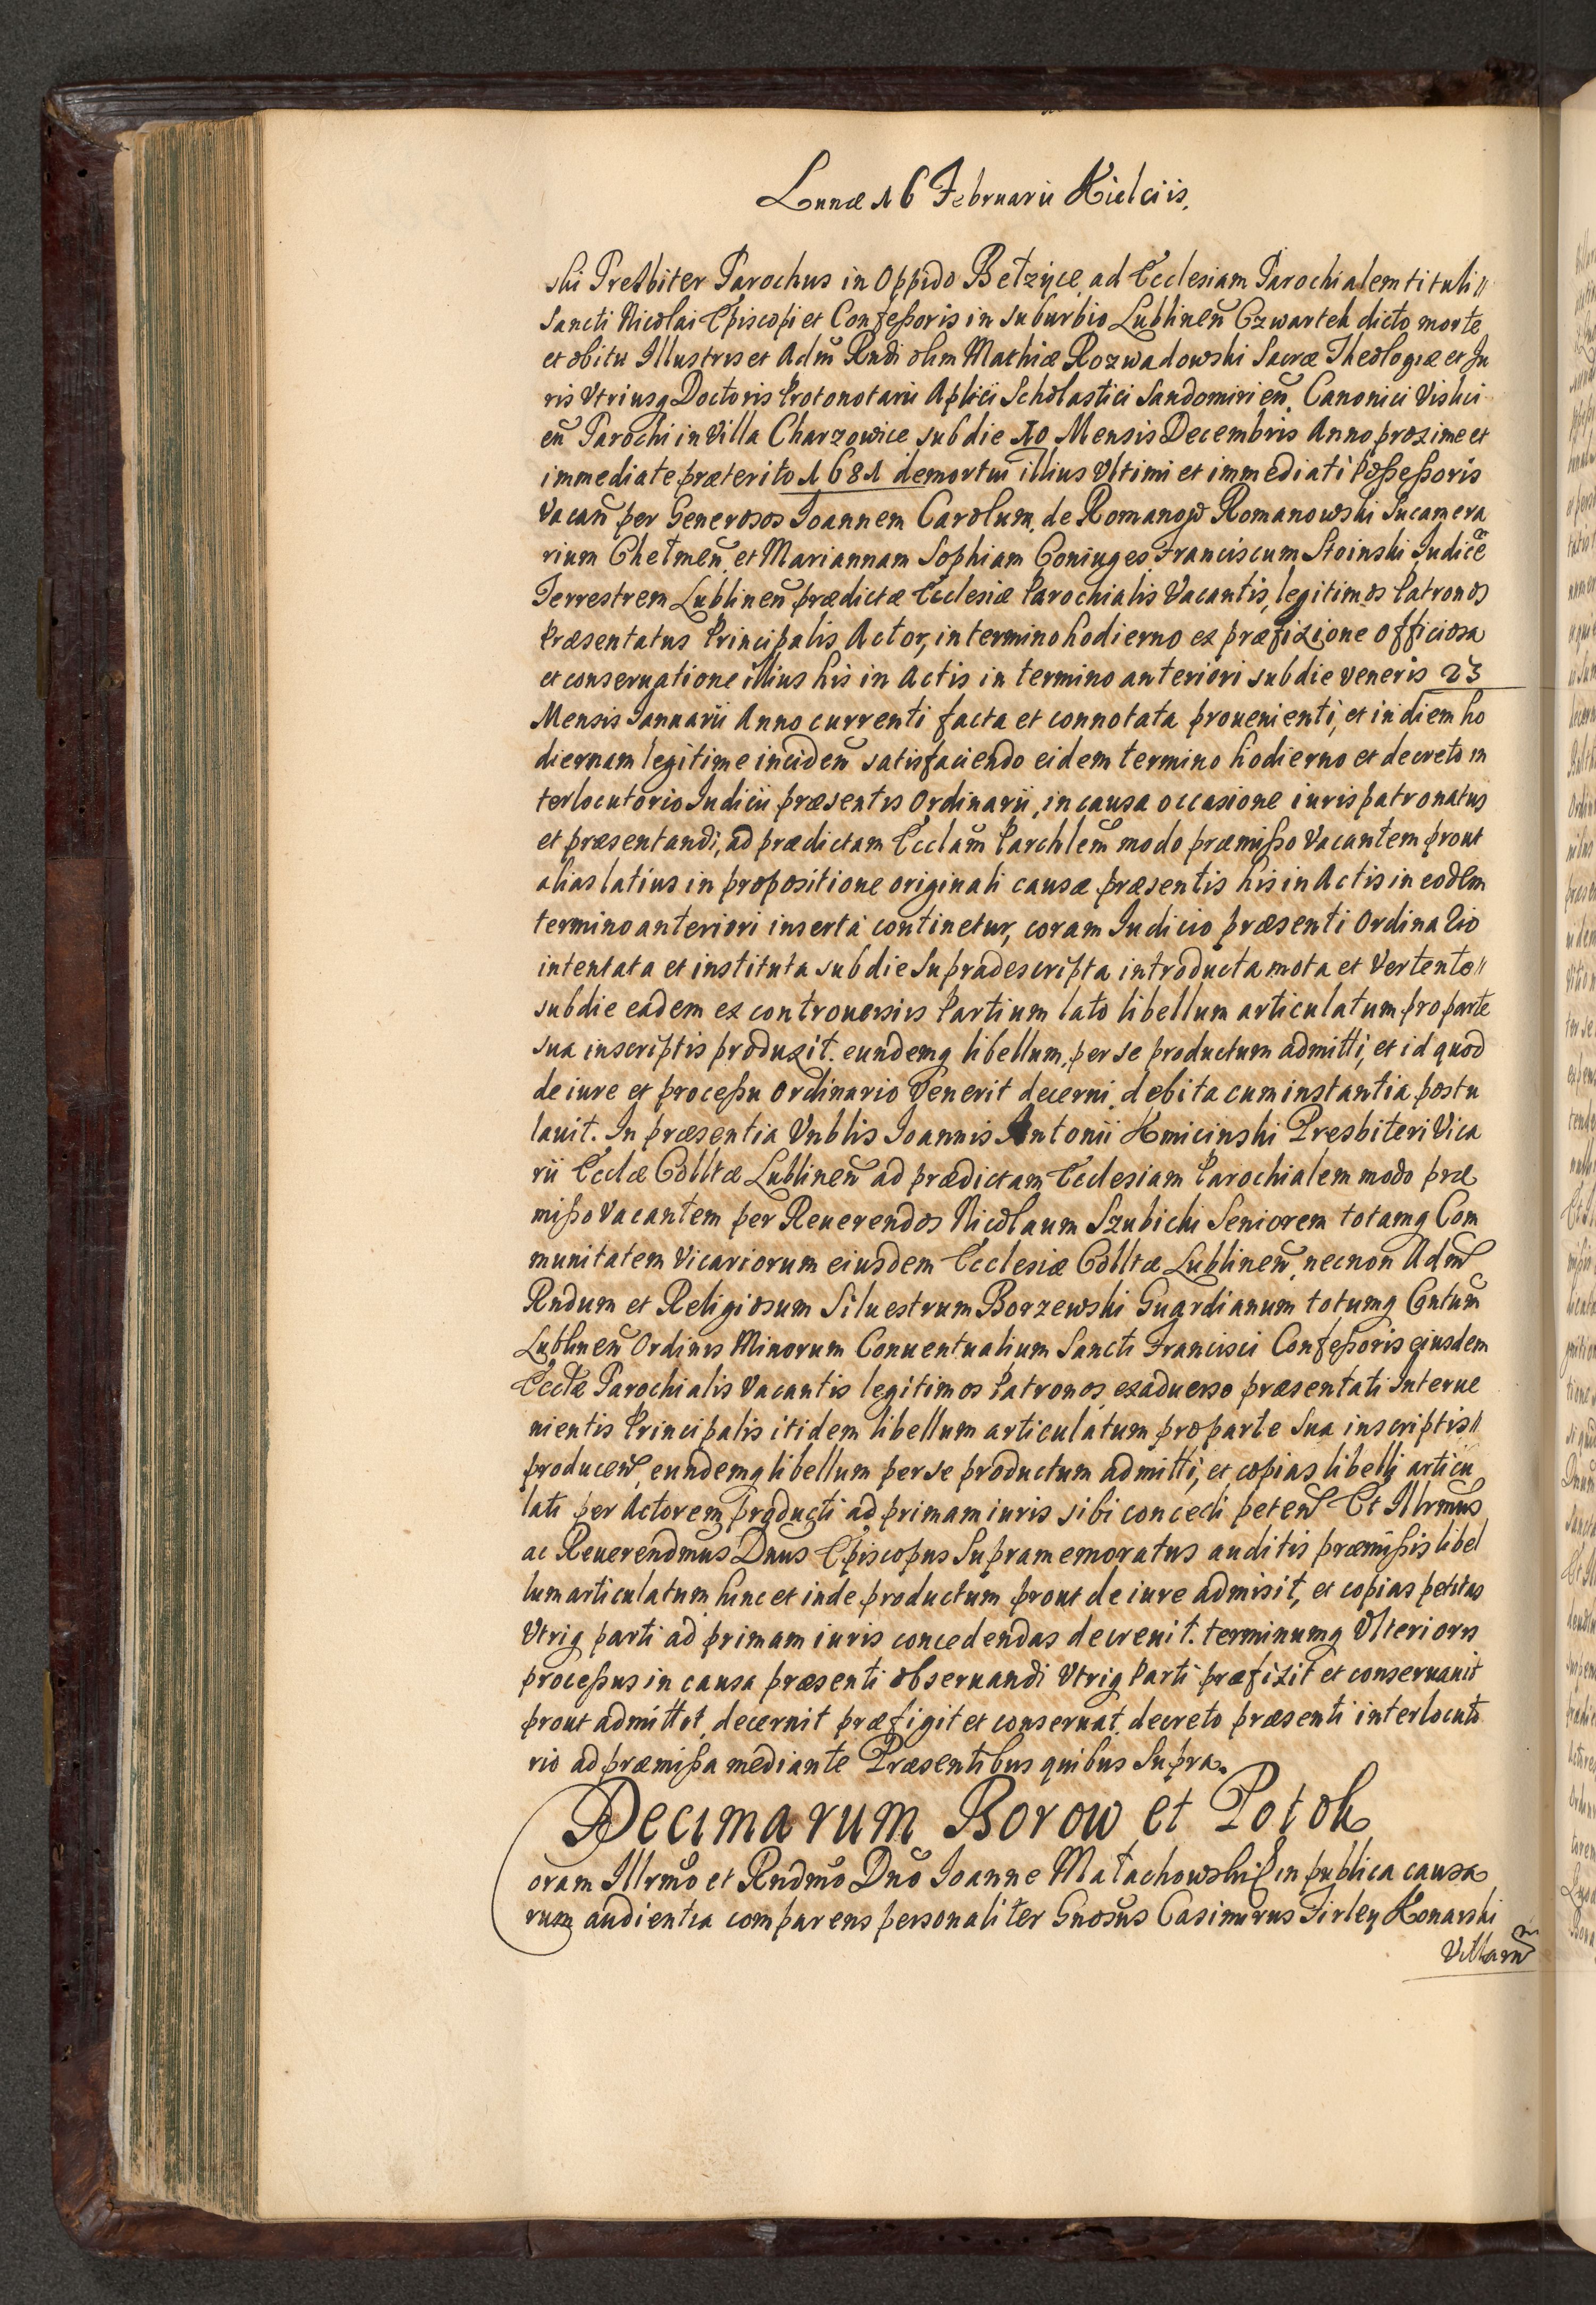 Lunæ 16 Februarii Kielciis.
ski Presbiter Parochus in Oppido Bełzyce, ad Ecclesiam Parochialem tituli
Sancti Nicolai Episcopi et Confeßoris in suburbio Lublineñ Czwartek dicto morte
et obitu Illustris et Adm̃ Rndi olim Mathiæ Rozwadowski Sacræ Theologiæ et Ju
ris Vtriusq Doctoris Protonotarii Aplici Scholastici Sandomirieñ, Canonici Vislici
eñ Parochi in Villa Charzowice sub die 10 Mensis Decembris Anno proxime et
immediate præterito 1681 demortui illius Vltimi et immediati Poßeßoris
Vacañ per Generosos Joannem Carolum de Romanow Romanowski Sucamera
rium Chełmeñ et Mariannam Sophiam Coniuges, Franciscum Stoinski Judicẽ
Terrestrem Lublineñ prædictæ Ecclesiæ Parochialis Vacantis, legitimos Patronos
Præsentatus Principalis Actor, in termino hodierno ex præfixione officiosa
et conseruatione illius his in Actis in termino anteriori sub die veneris 23
Mensis Januarii Anno currenti facta et connotata prouenienti, et in diem ho
diernam legitime incideñ satisfaciendo eidem termino hodierno et decreto in
terlocutorio Judicii præsentis Ordinarii, in causa occasione iuris patronatus
et præsentandi, ad prædictam Ecclam̃ Parchlem̃ modo præmißo Vacantem prout
alias latius in propositione originali causæ præsentis his in Actis in eodem
termino anteriori inserta continetur, coram Judicio præsenti Ordinario
intentata et instituta sub die Supradescripta introducta mota et Vertente
sub die eadem ex controuersiis Partium lato libellum articulatum pro parte
sua in scriptis produxit. eundemq libellum, per se productum admitti, et id quod
de iure et proceßu Ordinario Venerit decerni, debita cum instantia postu
lauit. In præsentia Vnblis Joannis Antonii Kmicinski Presbiteri Vica
rii Ecclæ Colltæ Lublineñ ad prædictam Ecclesiam Parochialem modo præ
mißo Vacantem per Reuerendos Nicolaum Szubicki Seniorem totamq Com
munitatem Vicariorum eiusdem Ecclesiæ Colltæ Lublineñ, necnon Adm̃
Rndum et Religiosum Siluestrum Borzewski Guardianum totumq Cntum̃
Lublineñ Ordinis Minorum Conuentualium Sancti Francisci Confeßoris eiusdem
Ecclæ Parochialis Vacantis legitimos Patronos ex aduerso præsentati Interue
nientis Principalis itidem libellum articulatum pro parte sua in scriptis
produceñ, eundemq libellum per se productum admitti, et copias libelli articu
lati per Actorem producti ad primam iuris sibi concedi peteñ Et Illrmus
ac Reuerendmus Dnus Episcopus Supramemoratus auditis præmißis libel
lum articulatum hinc et inde productum prout de iure admisit, et copias petitas
Vtriq parti ad primam iuris concedendas decreuit. terminumq Vlterioris
proceßus in causa præsenti obseruandi Vtriq Parti præfixit et conseruauit
prout admittit, decernit præfigit et conseruat, decreto præsenti interlocuto
rio ad præmißa mediante Præsentibus quibus Supra.
Decimarum Borow et Potok
Coram Illrmo et Rndmo Dno Joanne Małachowski E in publica causa
rum audientia comparens personaliter Gnosus Casimirus Firley Konarski
Villarum